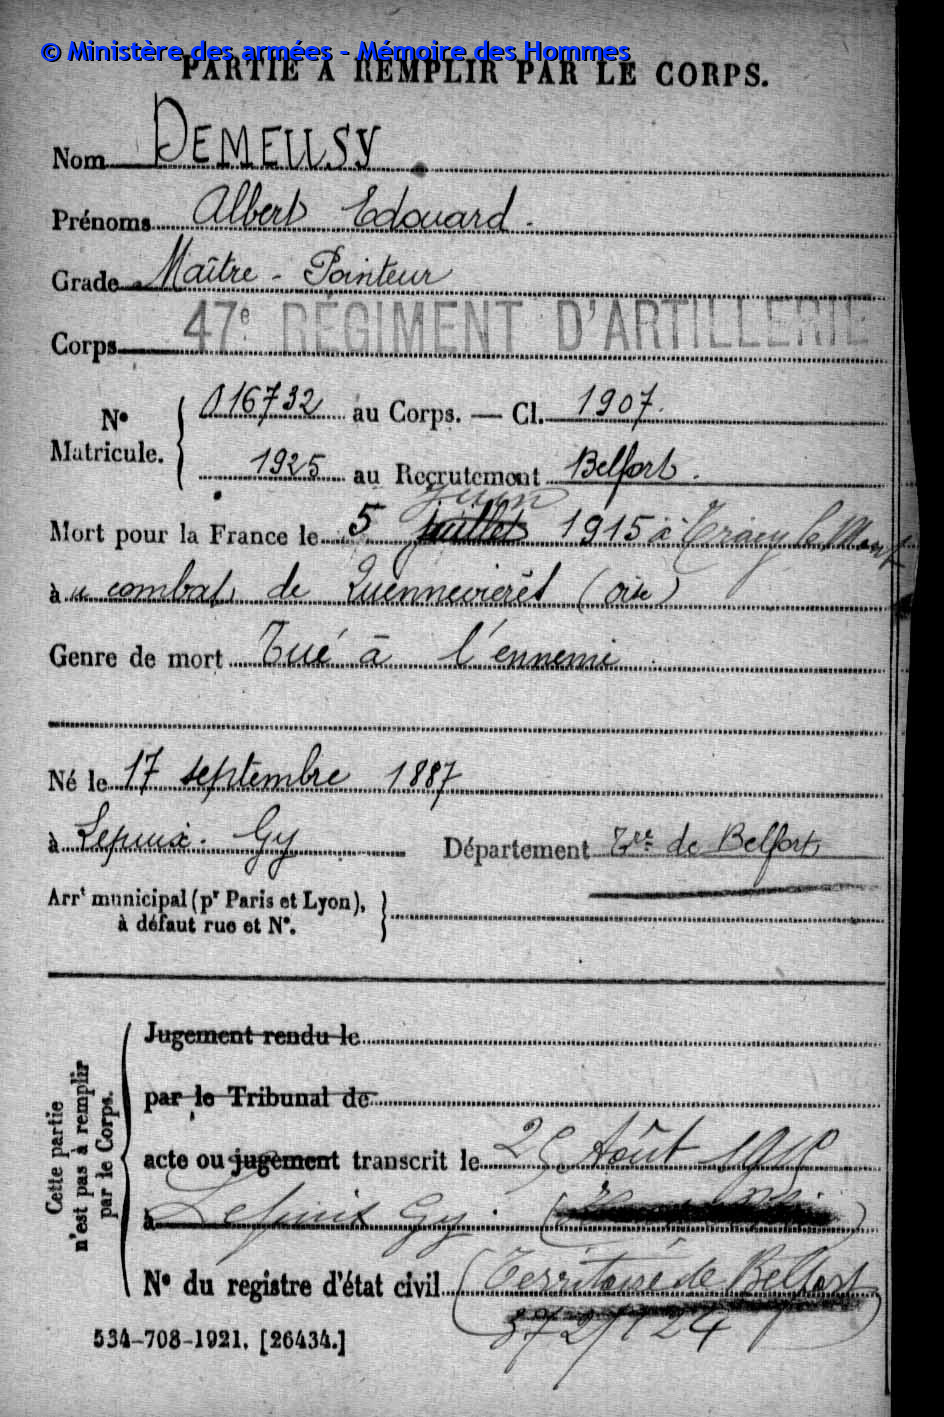 © Ministère des armées - Mémoire des Hommes
PARTIE A REMPLIR PAR LE CORPS.
Nom DEMEUSY
Prénoms Albert Edouard -
Grade Maître - Pointeur
Corps 47e RÉGIMENT D'ARTILLERIE
N° Matricule. { 016732 au Corps. — Cl. 1907.
1925 au Recrutement Belfort.
juin
Mort pour la France le 5 juillet 1915 à Tracy le Mont
à u combat de Quennevières (oise)
Genre de mort Tué à l'ennemi
Né le 17 septembre 1887
à Lepuix. Gy Département Tre de Belfort
Arrt municipal (pr Paris et Lyon),
à défaut rue et N°.
Cette partie n'est pas à remplir par le Corps.
Jugement rendu le
par le Tribunal de
acte ou jugement transcrit le 25 Août 1915
à Lepuix Gy.
N° du registre d'état civil (Territoire de Belfort)
372/124
534-708-1921. [26434.]